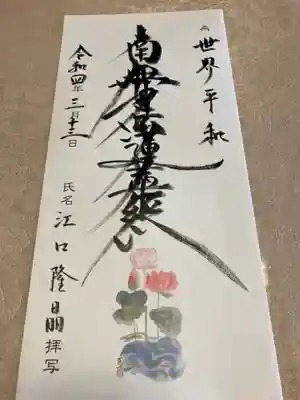 為 世界平和
南無妙法蓮華経
令和四年三月十三日
氏名 江口隆昌 拝写